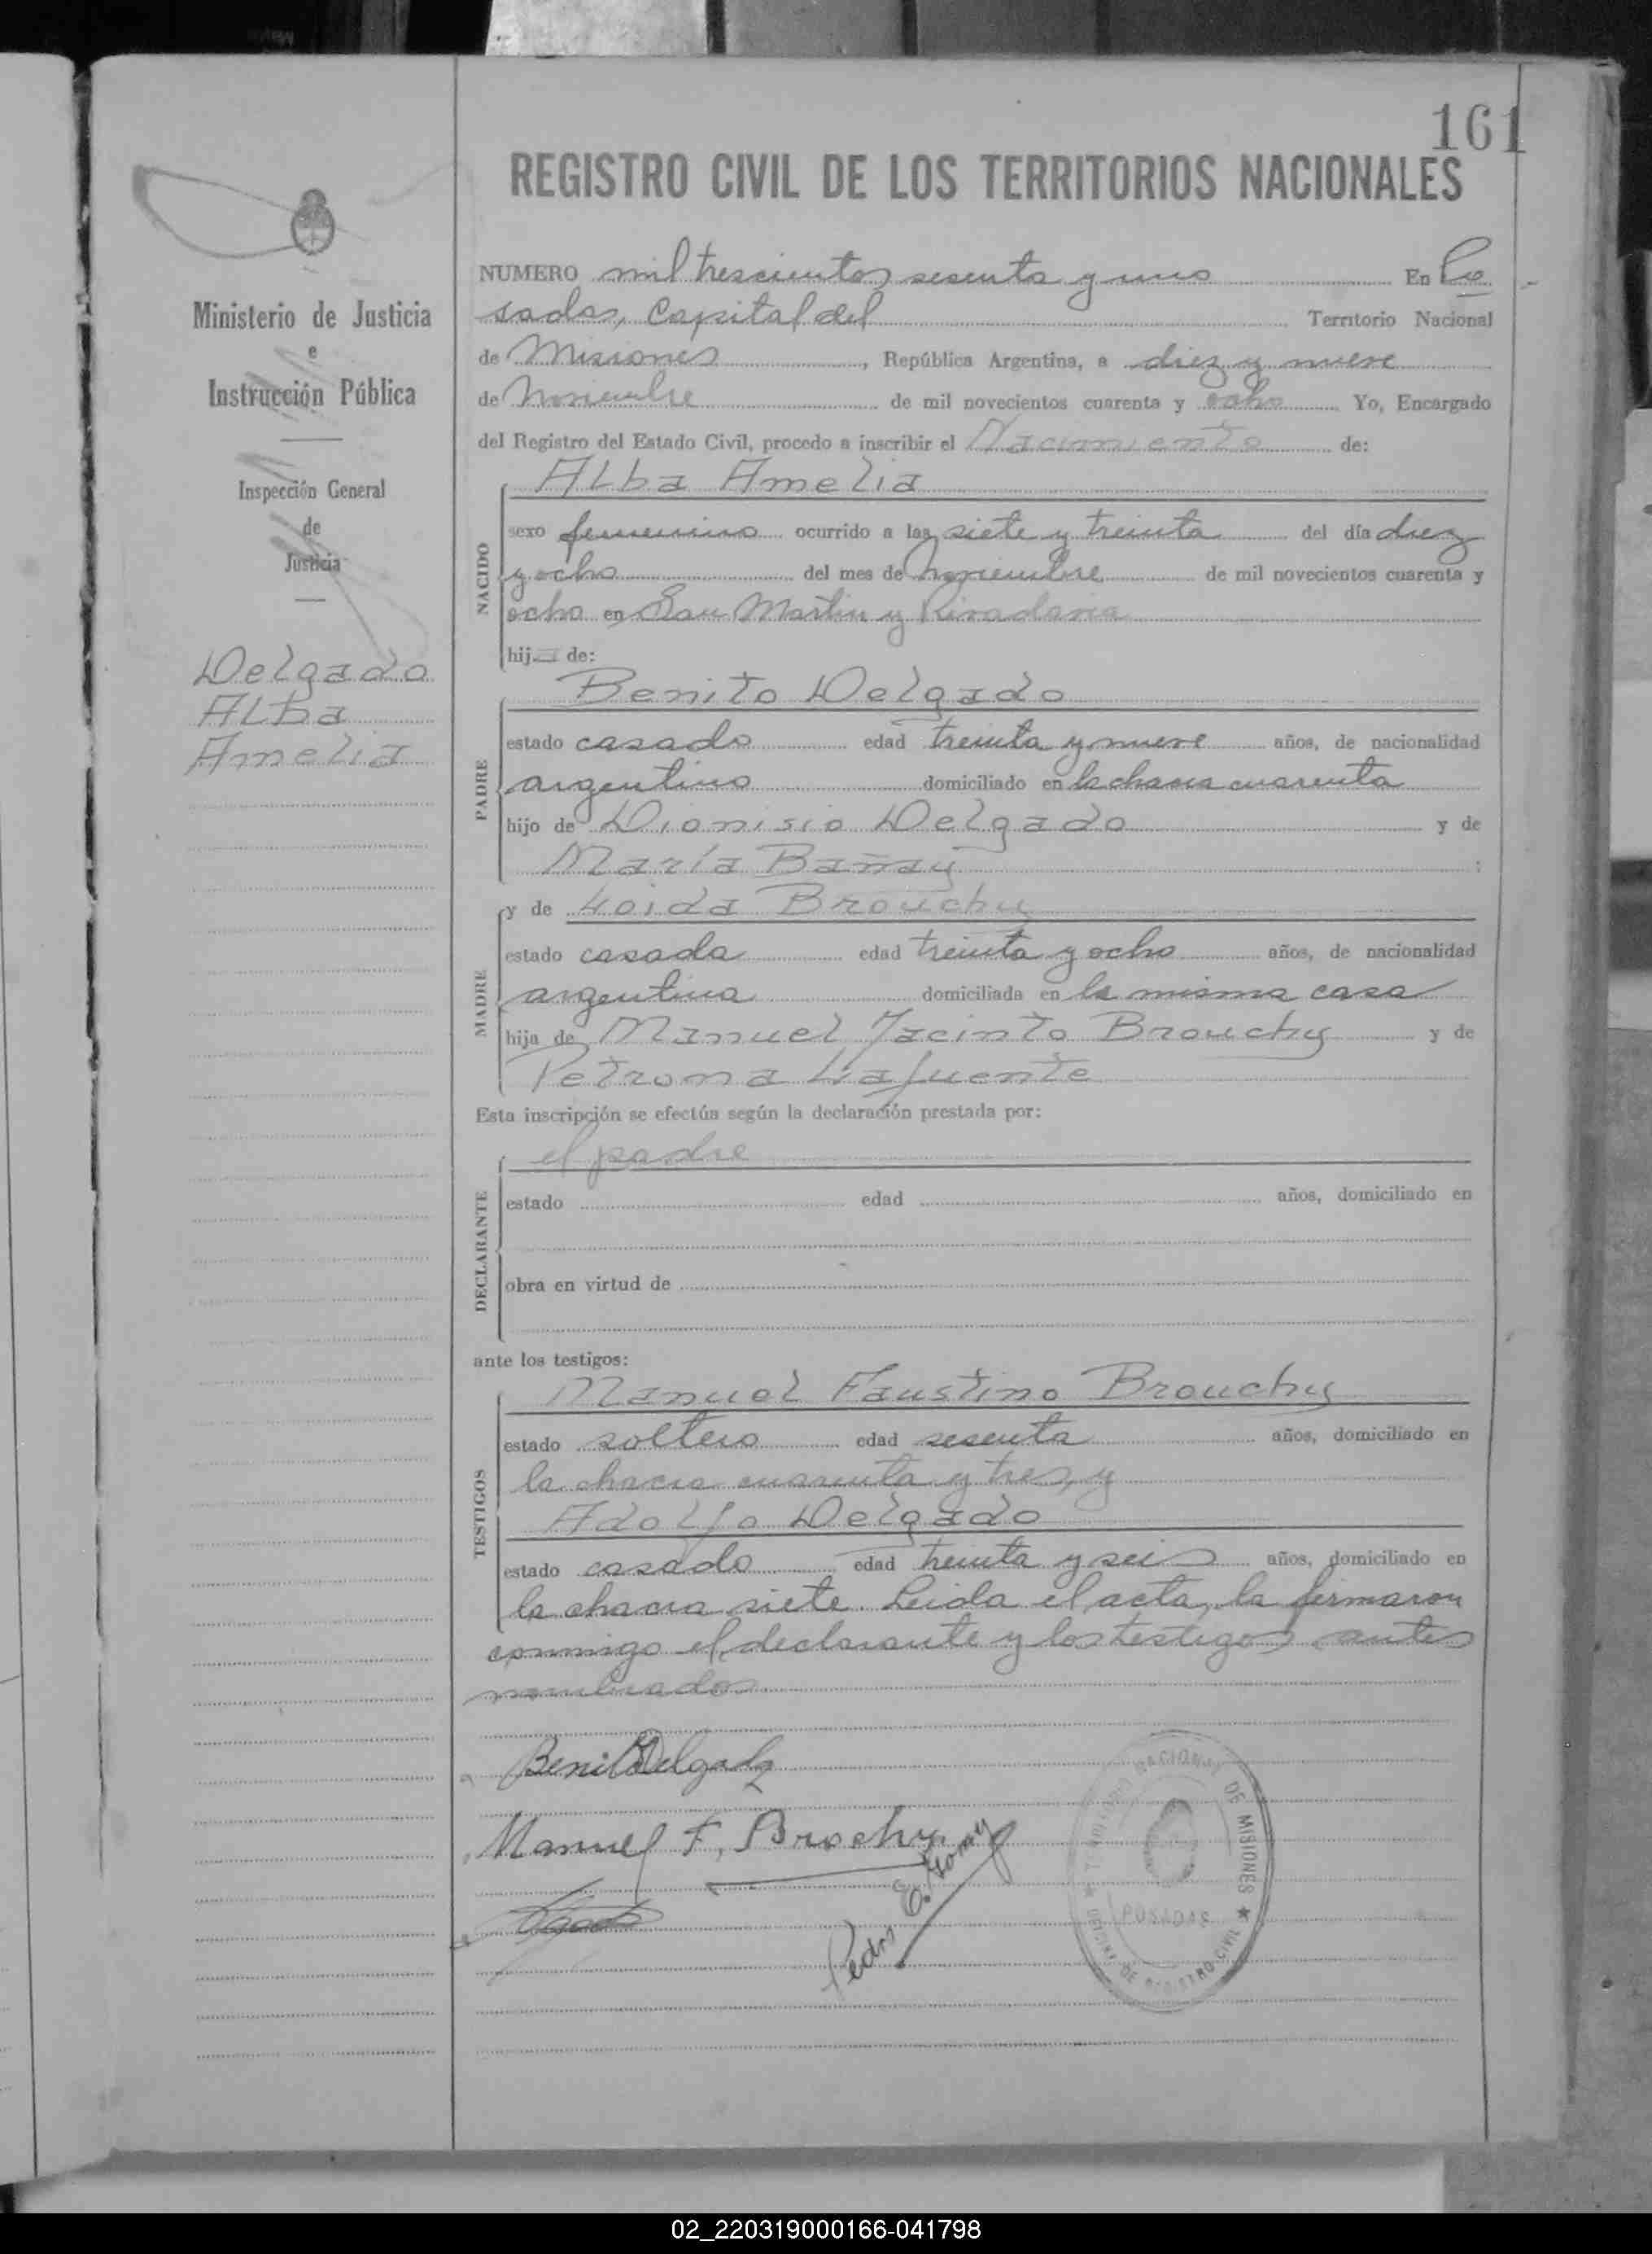 161
REGISTRO CIVIL DE LOS TERRITORIOS NACIONALES
Ministerio de Justicia
e
Instrucción Pública
Inspección General
de
Justicia
Delgado
Alba
Amelia
NUMERO mil trescientos sesenta y uno En Po
sadas, Capital del Territorio Nacional
de Misiones, República Argentina, a diez y nueve
de Noviembre de mil novecientos cuarenta y ocho Yo, Encargado
del Registro del Estado Civil, procedo a inscribir el Nacimiento de:
Alba Amelia
NACIDO
sexo femenino ocurrido a las siete y treinta del día diez
y ocho del mes de noviembre de mil novecientos cuarenta y
ocho en San Martin y Rivadavia
hija de:
Benito Delgado
PADRE
estado casado edad treinta y nueve años, de nacionalidad
argentino domiciliado en la chacra cuarenta
hijo de Dionisio Delgado y de
María Bañay :
y de Loida Brouchy
MADRE
estado casada edad treinta y ocho años, de nacionalidad
argentina domiciliada en la misma casa
hija de Manuel Jacinto Brouchy y de
Petrona Lafuente
Esta inscripción se efectúa según la declaración prestada por:
el padre
DECLARANTE
estado edad años, domiciliado en
obra en virtud de
ante los testigos:
Manuel Faustino Brouchy
TESTIGOS
estado soltero edad sesenta años, domiciliado en
la chacra cuarenta y tres, y
Adolfo Delgado
estado casado edad treinta y seis años, domiciliado en
la chacra siete. Leida el acta, la firmaron
conmigo el declarante y los testigos antes
nombrados
Benito Delgado
Manuel F. Brochy
Pedro E.
TERRITORIO NACIONAL DE MISIONES
POSADAS
OFICINA DE REGISTRO CIVIL
02_220319000166-041798